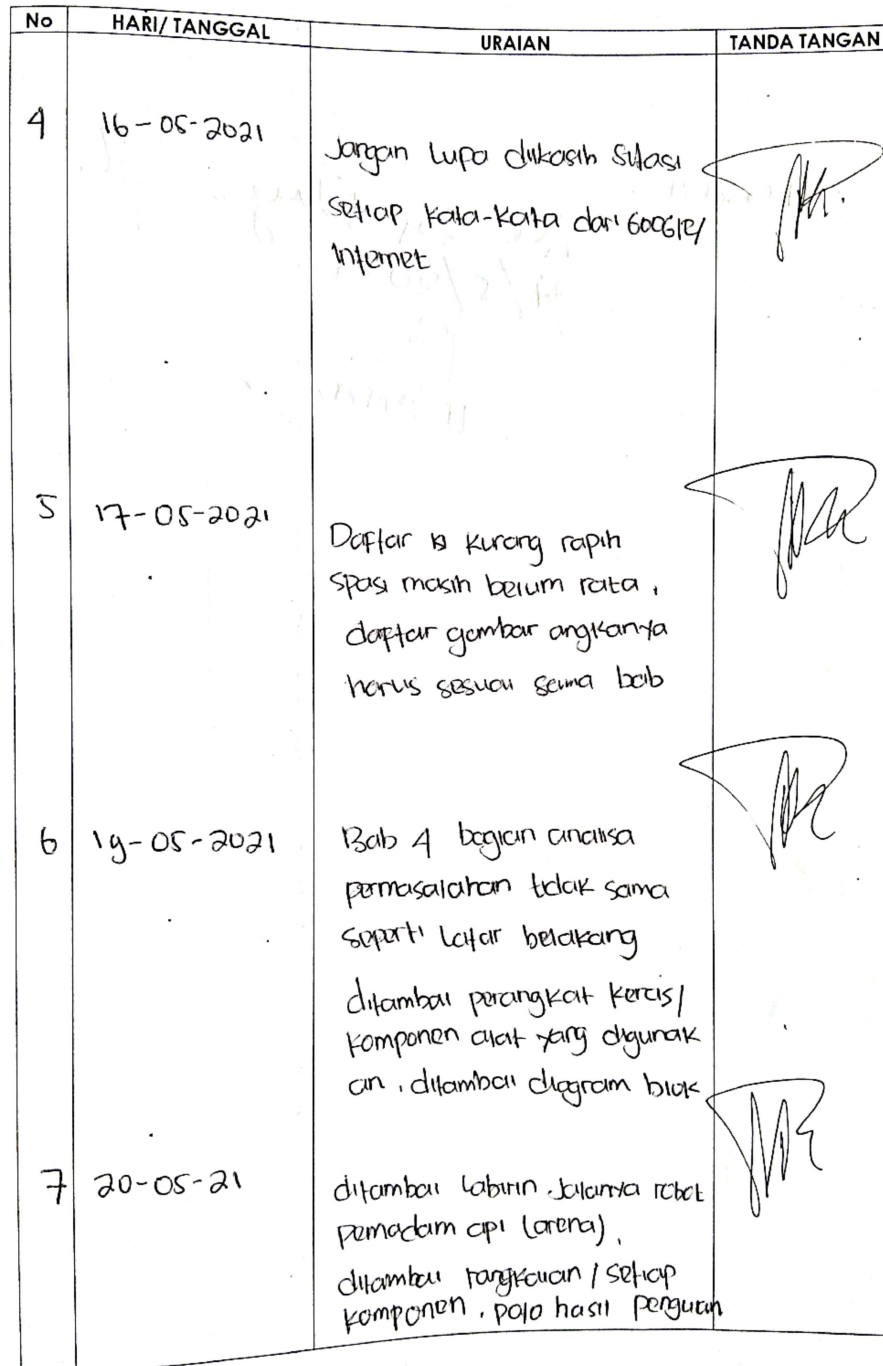 No HARI/ TANGGAL URAIAN TANDA TANGAN
4 16-05-2021
Jangan Lupa dikasih Sitasi
setiap kata-kata dari GOOGle/
Internet
5 17-05-2021
Daftar isi kurang rapih
spasi masih belum rata,
daftar gambar angkanya
harus sesuai sama bab
6 19-05-2021 Bab 4 bagian analisa
permasalahan tidak sama
seperti Latar belakang
ditambai perangkat keras/
komponen alat yang digunak
an, ditambai diagram blok
7 20-05-21 ditambai Labirin Jalannya robot
pemadam api (arena),
ditambai rangkaian / setiap
komponen, hasil